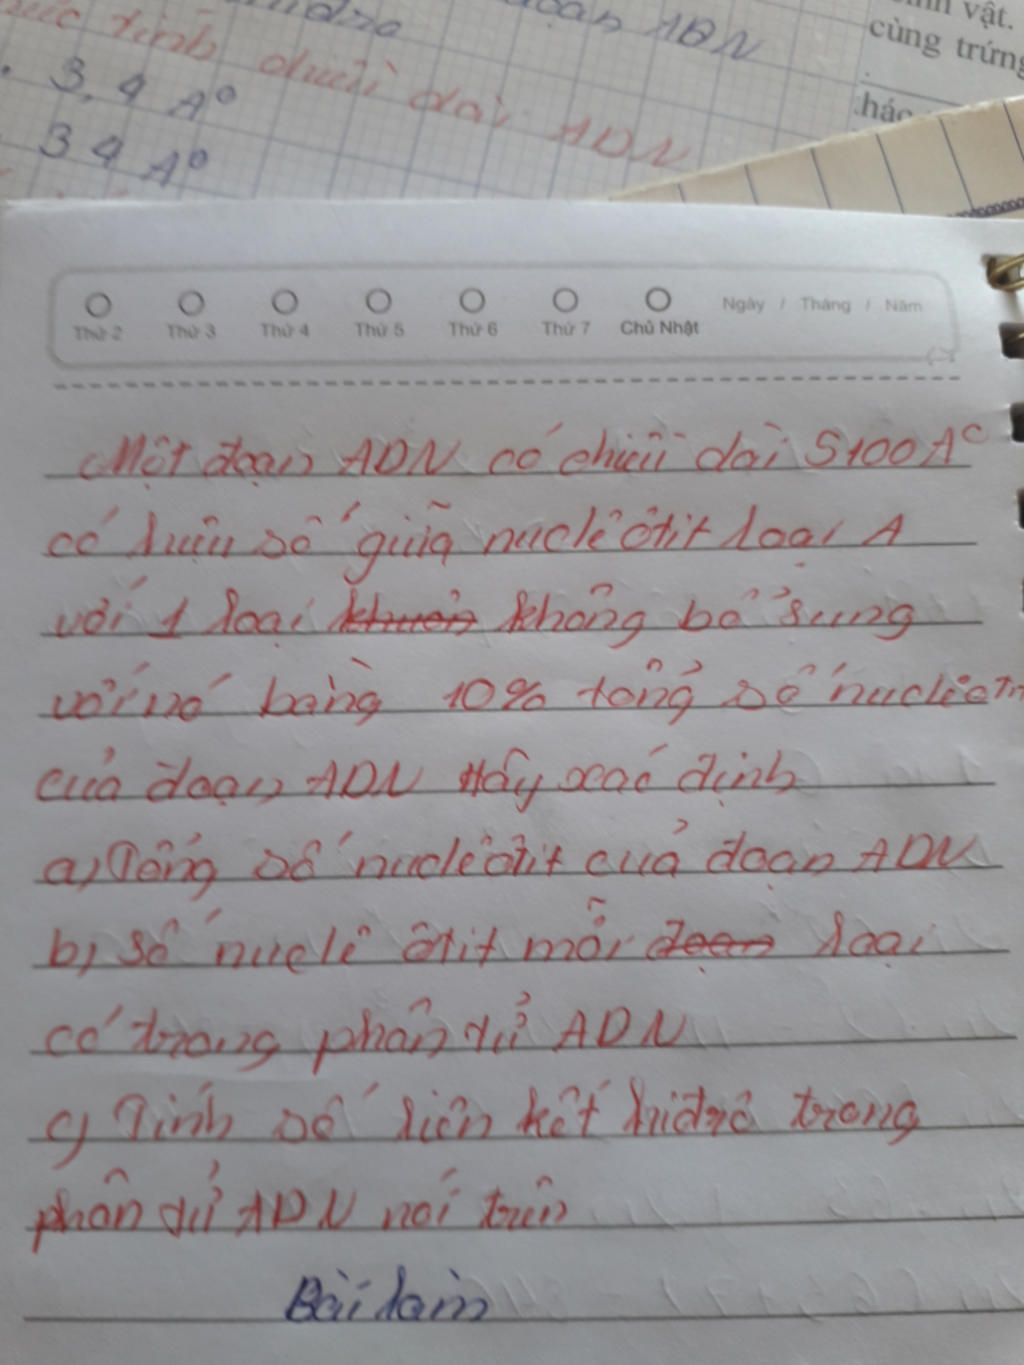 đoạn ADN
thức tính chiều dài ADN
3,4 A⁰
34 A⁰
vật.
cùng trứng
Thứ 2 Thứ 3 Thứ 4 Thứ 5 Thứ 6 Thứ 7 Chủ Nhật Ngày / Tháng / Năm
Một đoạn ADN có chiều dài 5100 A⁰
có hiệu số giữa nuclêôtit loại A
với 1 loại không bổ sung
với nó bằng 10% tổng số nuclêôtit
của đoạn ADN Hãy xác định
a) Tổng số nuclêôtit của đoạn ADN
b) Số nuclêôtit mỗi loại
có trong phân tử ADN
c) Tính số liên kết hiđrô trong
phân tử ADN nói trên
Bài làm